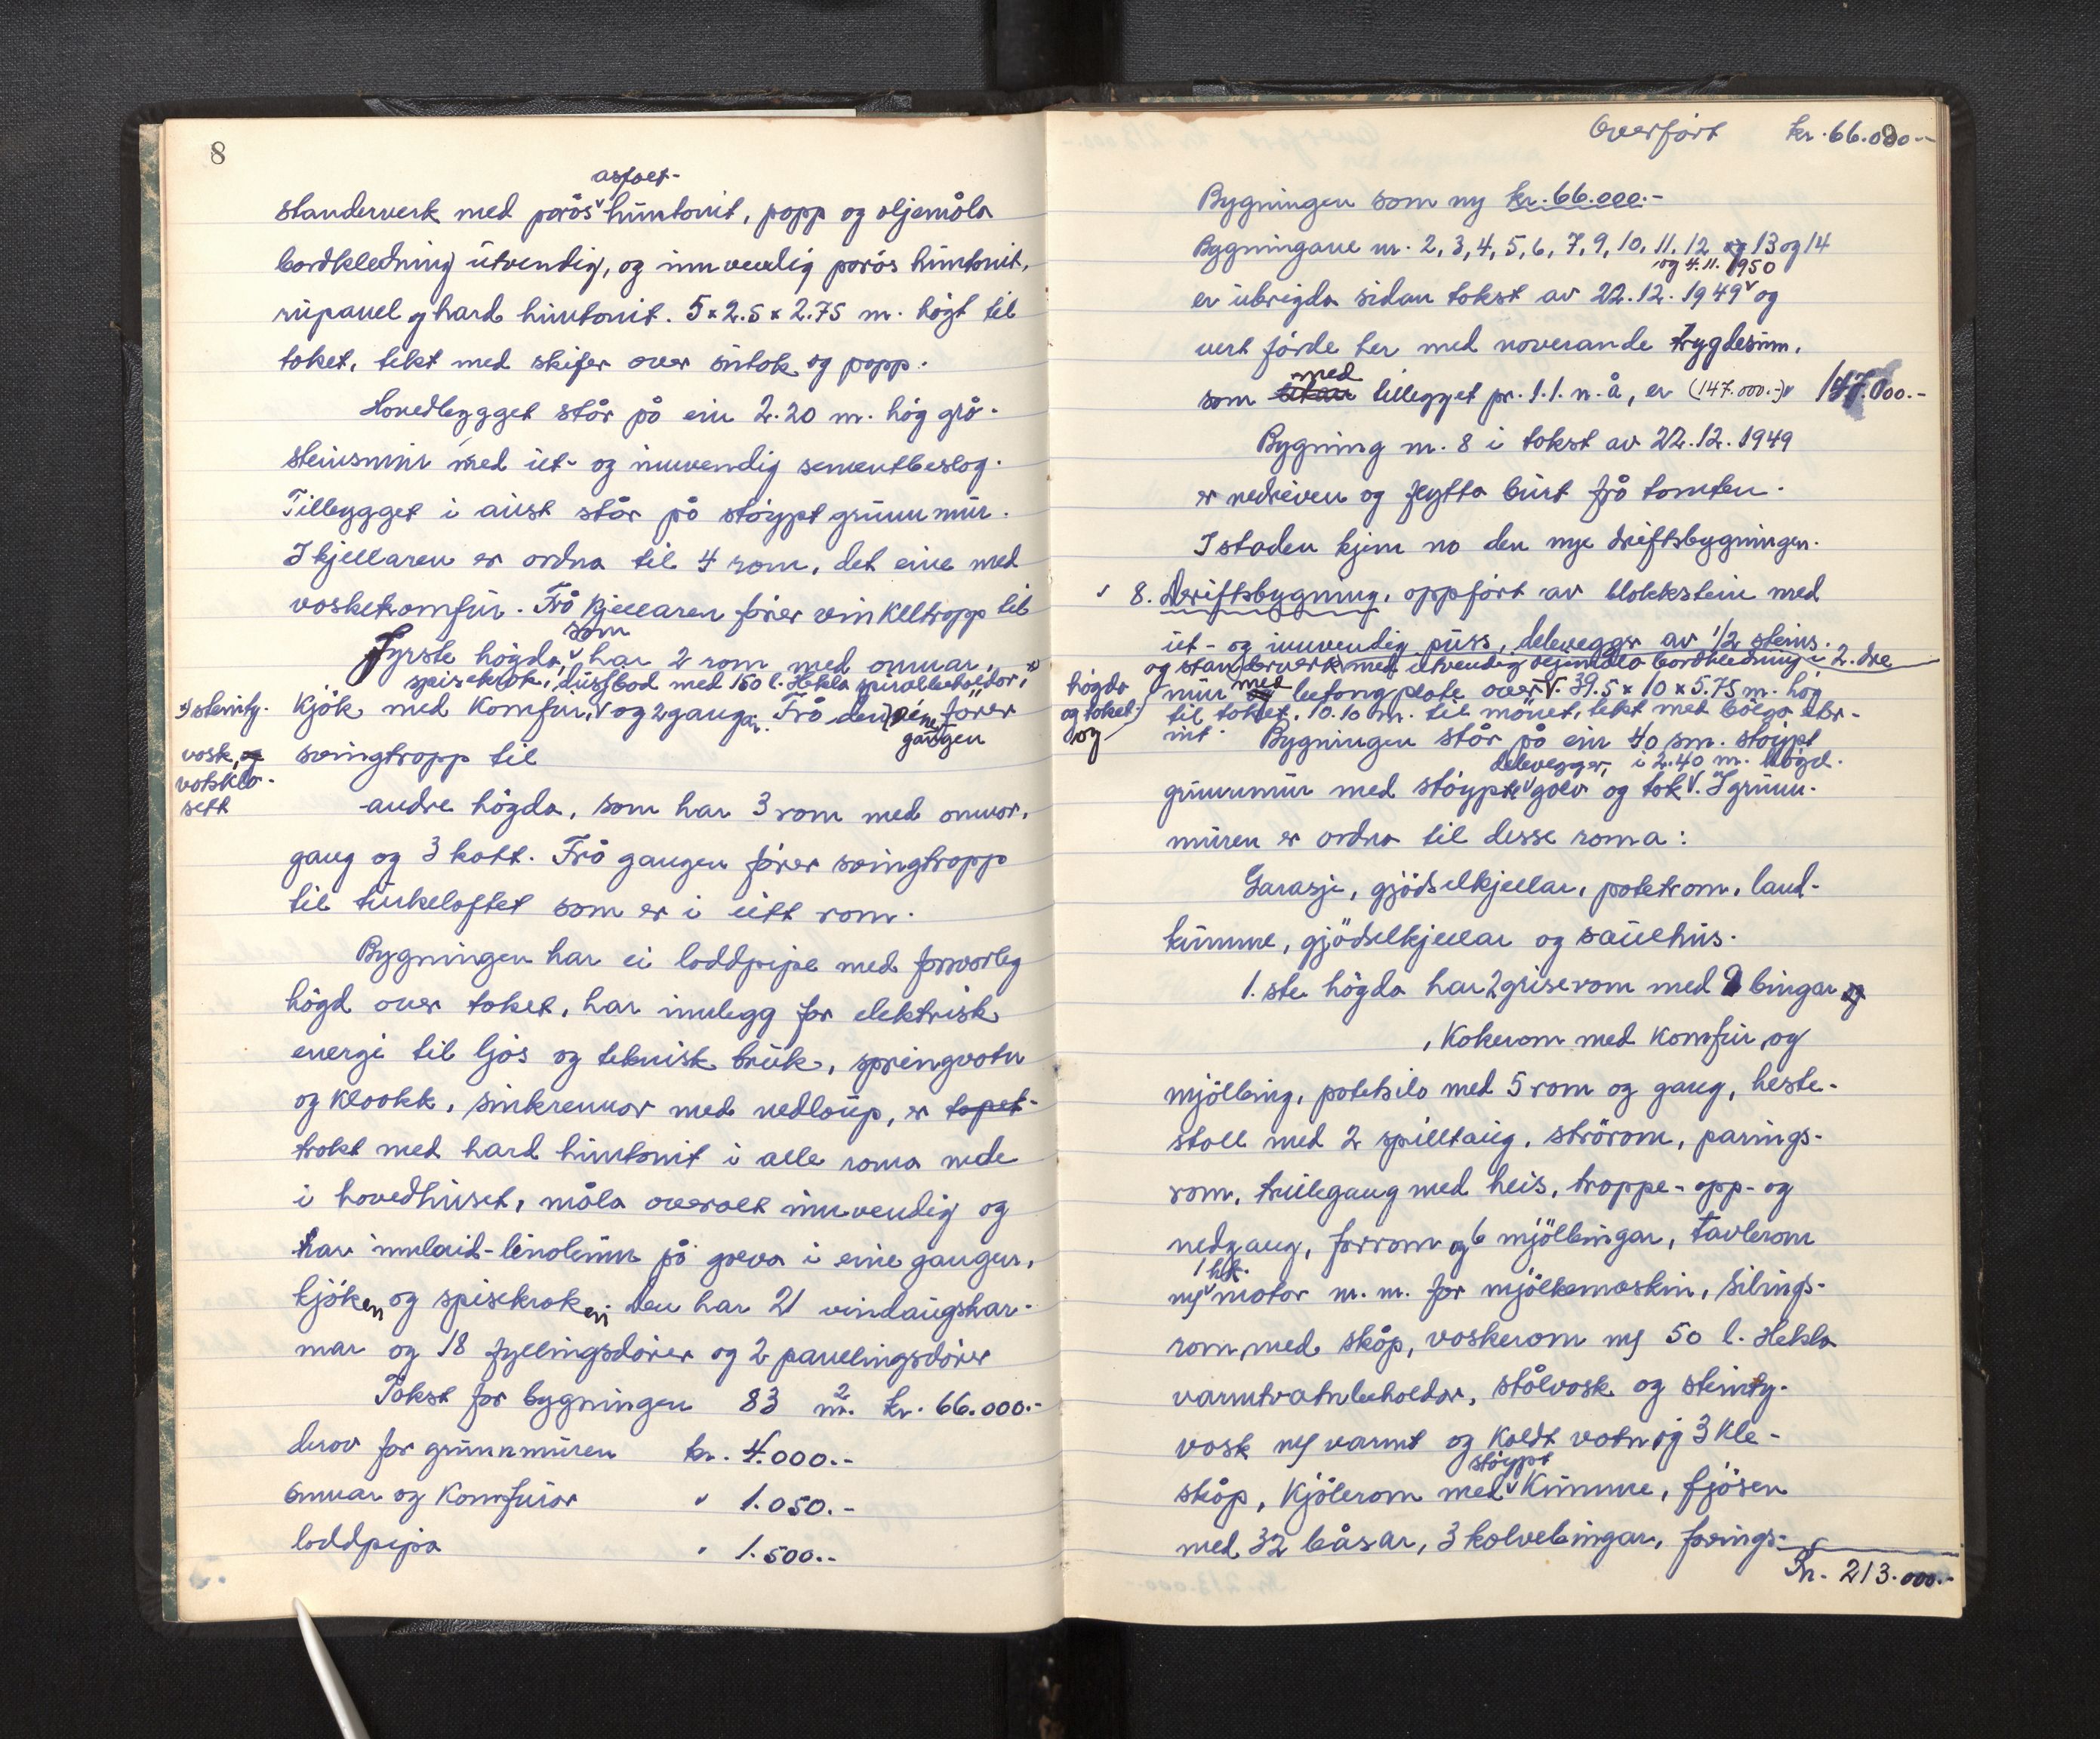 8
asfalt-
standerverk med porøs huntonit, papp og oljemåla
bordkledning utvendig, og innvendig porøs huntonit,
rupanel og hard huntonit. 5 x 2.5 x 2.75 m. högt til
taket, tekt med skifer over sutak og papp.
Hovedbygget står på ein 2.20 m. høg grå-
steinsmur med ut- og innvendig sementbeslag.
Tillbygget i aust står på støypt grunnmur.
I kjellaren er ordna til 4 rom, det eine med
vaskekomfur. Frå kjellaren fører vinkeltrapp til
som
fyrste högda, har 2 rom med omnar,
spisekrok, dusjbod med 150 l. Hekla spiralbeholdar, x)
x) steinty-
vask, og
vatsklo-
sett
kjök. med komfur, og 2 gangar. Frå den eine fører
gangen
svingtrapp til
andre högda, som har 3 rom med omnar,
gang og 3 kott. Frå gangen fører svingtrapp
til turkeloftet som er i eitt rom.
Bygningen har ei loddpipe med forsvarleg
högd over taket, har innlegg for elektrisk
energi til ljos og teknisk bruk, springvatn
og kloakk, sinkrennor med nedlaup, er tapet-
trekt med hard huntonit i alle roma nede
i hovedhuset, måla overalt innvendig og
har innlaid-linoleum på golva i eine gangen,
kjöken og spisekroken. Den har 21 vindaugskar-
mar og 18 fyllingsdører og 2 panelingsdører
Takst for bygningen 83 m2. kr. 66.000.-
derav for grunnmuren kr. 4.000.-
Omnar og komfuror " 1.050.-
loddpipa " 1.500.-
Overført kr. 66.000.-
9
Bygningen som ny kr. 66.000.-
Bygningane nr. 2, 3, 4, 5, 6, 7, 9, 10, 11, 12 og 13 og 14
og 4.11. 1950
er ubrigda sidan takst av 22.12.1949 og
vert förde her med noverande trygdesum,
med
som utan tillegget pr. 1.1. n. å, er (147.000.-) 147.000.-
Bygning nr. 8 i takst av 22.12.1949
er nedreven og flytta burt frå tomten.
I staden kjem no den nye driftsbygningen.
8. Driftsbygning, oppført av blokkstein med
ut- og innvendig puss, delevegger av 1/2 steins
og standerverk med utvendig oljemåla bordkledning i 2. dre
högda
og taket.
og
mur med betong plate over. 39.5 x 10 x 5.75 m. høg
til taket. 10.10 m. til mönet, tekt med bølga eter-
nit. Bygningen står på ein 40 sm. støypt
delevegger, i 2.40 m. högd.
grunnmur med støypte golv og tak. I grunn-
muren er ordna til desse roma:
Garasje, gjödselkjellar, potetrom, land-
kumme, gjödselkjellar og sauehus.
1. ste högda har 2 griserom med 9 bingar og
, kokerom med komfur, og
mjölbing, potetsilo med 5 rom og gang, heste-
stall med 2 spilltaug, strörom, parings-
rom, trillegang med heis, trappe- opp- og
nedgang, forrom og 6 mjölbingar, tavlerom
1 hk.
m/ motor m. m. for mjölkemaskin, silings-
rom med skåp, vaskerom m/ 50 l. Hekla
varmtvatnbeholdar, stålvask og steinty-
vask m/ varmt og kaldt vatn og 3 kle-
støypt
skåp, kjölerom med kumme, fjösen
med 32 båsar, 3 kalvebingar, forings-
Kr. 213.000.-